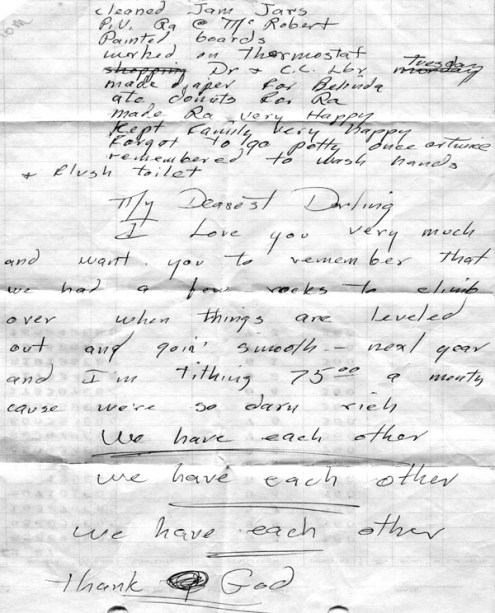 10th
cleaned Jam Jars
P.U. Ra @ Mc Robert
Painted boards
worked on Thermostat
shopping Dr & C.C. Lbr Tuesday monday
made diaper for Belinda
ate donuts for Ra
made Ra very Happy
Kept Family very Happy
Forgot to go potty once or twice
remembered to wash hands
+ flush toilet
My Dearest Darling
I Love you very much
and want you to remember that
we had a few rocks to climb
over when things are leveled
out and goin' smooth - next year
and I'm Tithing 75.00 a month
cause we're so darn rich
We have each other
we have each other
we have each other
Thank God